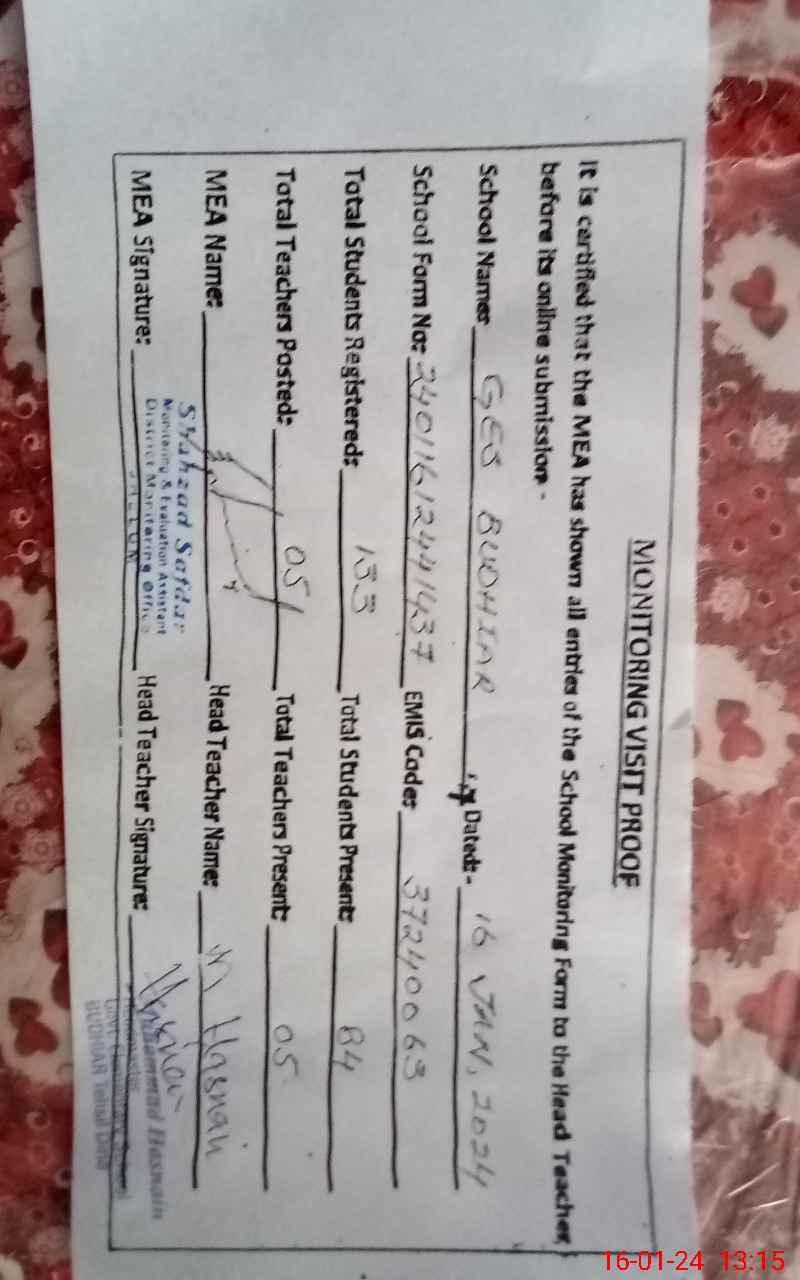 MONITORING VISIT PROOF
It is certified that the MEA has shown all entries of the School Monitoring Form to the Head Teacher,
before its online submission.-
School Name: GES BUDHIAR Dated:- 16 JAN, 2024
School Form No: EMIS Code: 37240063
Total Students Registered: 133 Total Students Present: 84
Total Teachers Posted: 05 Total Teachers Present: 05
MEA Name: Head Teacher Name: M Hasnain
Shahzad Safdar
Monitoring & Evaluation Assistant
District Monitoring Office
JHELUM
MEA Signature: Head Teacher Signature: Hasnain
Muhammad Hasnain
Headmaster
Govt. Elementary School
BUDHIAR Tehsil Dina
16-01-24 13:15